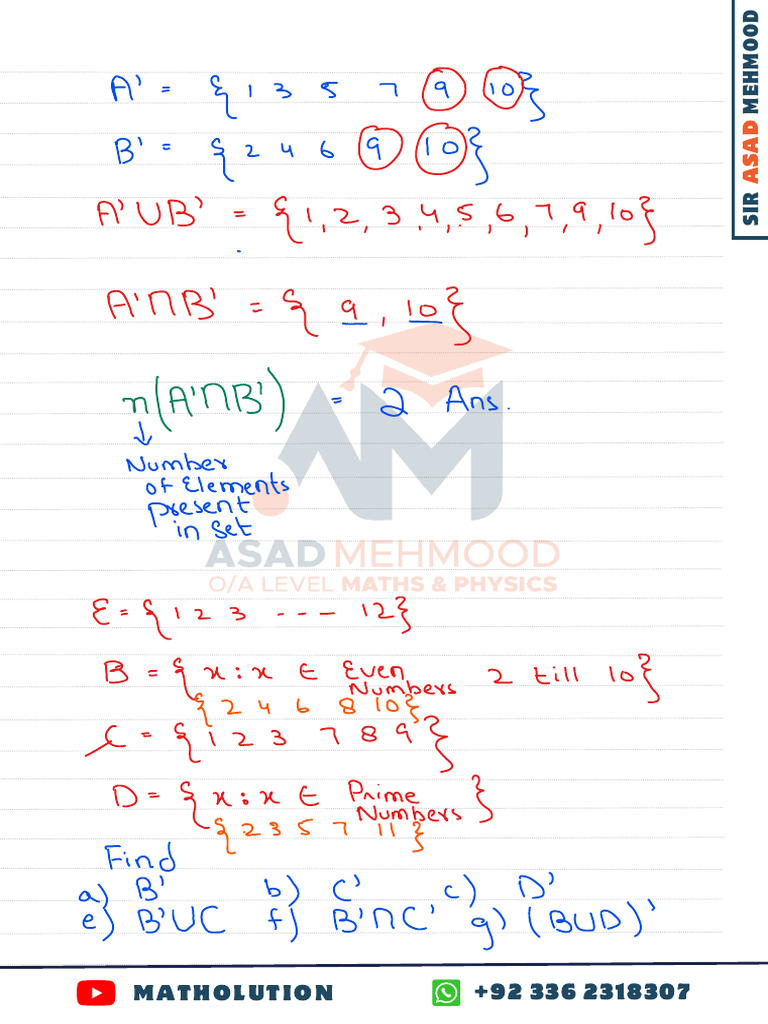 SIR ASAD MEHMOOD
A' = { 1 3 5 7 9 10 }
B' = { 2 4 6 9 10 }
A'∪B' = { 1, 2, 3, 4, 5, 6, 7, 9, 10 }
A'∩B' = { 9 , 10 }
n(A'∩B') = 2 Ans.
↓
Number
of Elements
present
in Set
ASAD MEHMOOD
O/A LEVEL MATHS & PHYSICS
Ɛ = { 1 2 3 ---- 12 }
B = { x : x ∈ Even Numbers 2 till 10 }
{ 2 4 6 8 10 }
C = { 1 2 3 7 8 9 }
D = { x : x ∈ Prime Numbers }
{ 2 3 5 7 11 }
Find
a) B' b) C' c) D'
e) B'∪C f) B'∩C' g) (B∪D)'
MATHOLUTION +92 336 2318307